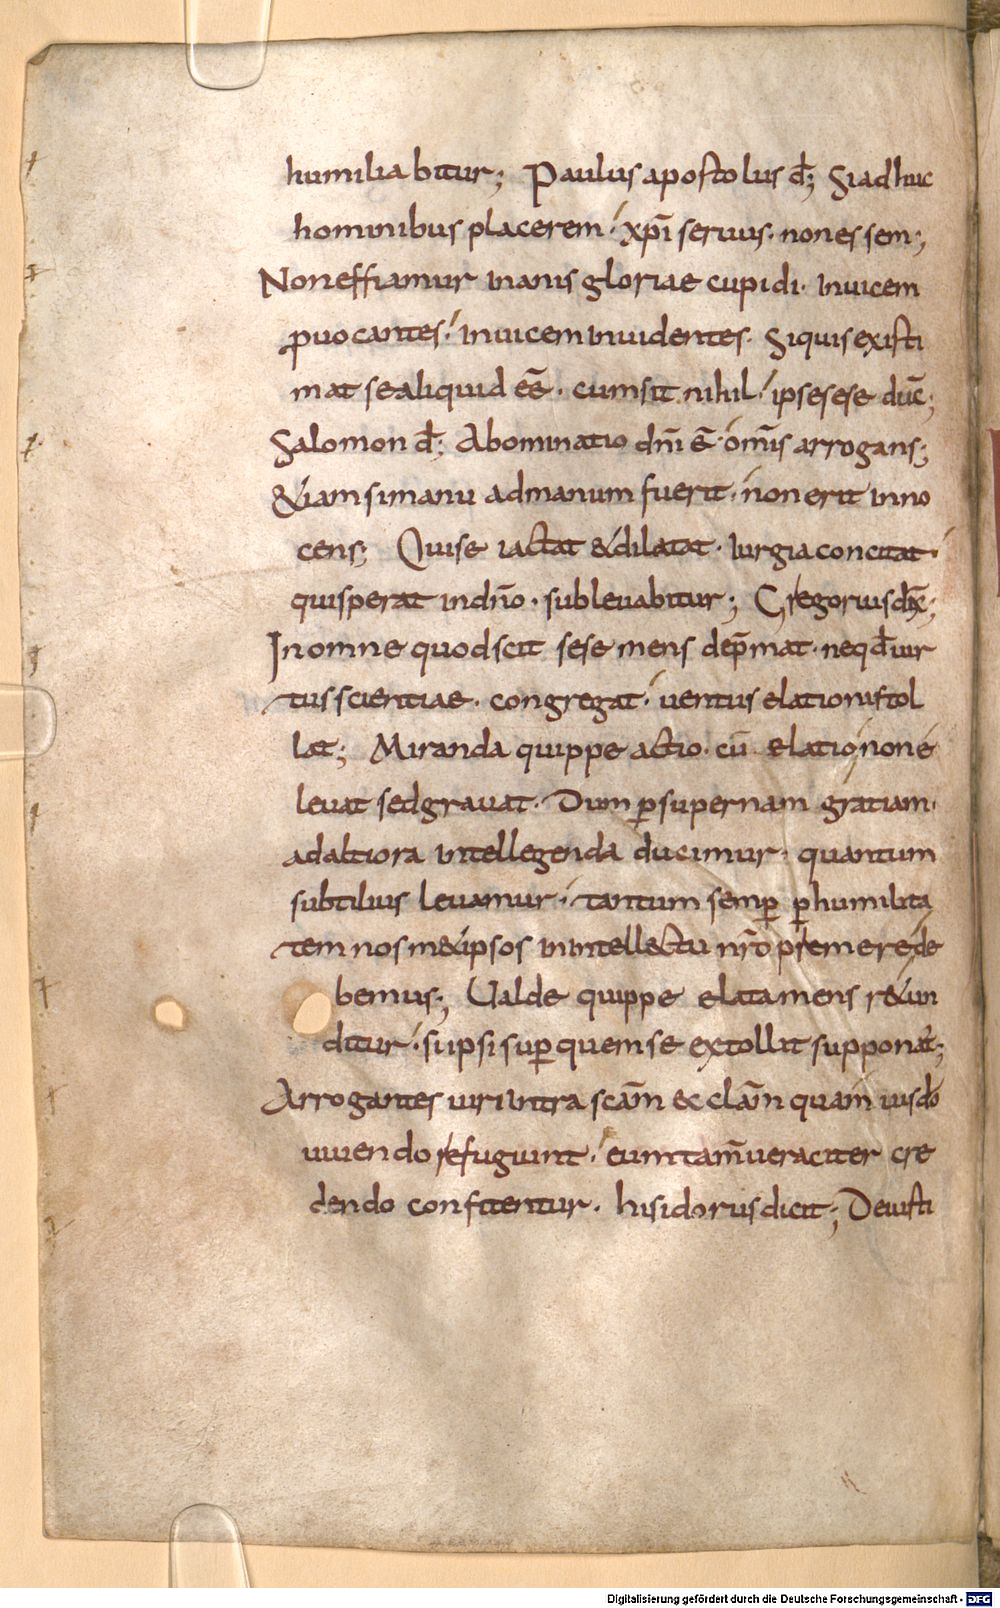 humiliabitur; Paulus apostolus d̄; Si adhuc
hominibus placerem · xp̄i seruus · non essem;
Non efficiamur inanis gloriae cupidi · inuicem
ꝓuocantes · inuicem inuidentes · Siquis existi
mat se aliquid eē̄ · cum sit nihil · ipse sese duc̄;
Salomon d̄; Abominatio dn̄i ē · om̄is arrogans;
&iam si manu ad manum fuerit · non erit inno
cens; Qui se iactat & dilatat · iurgia concitat ·
qui sperat in dn̄o · subleuabitur; Gregorius dix̄;
In omne quod scit sese mens dep̄mat · neqd̄ uir
tus scientiae · congregat · uentus elationis tol
lat; Miranda quippe actio · cū elatio non é
leuat sed grauat · Dum ꝑ supernam gratiam ·
ad altiora intellegenda ducimur · quantum
subtilius leuamur · tantum semꝑ ꝑ humilita
tem nosm&ipsos in intellectu nr̄o premere de
bemus; Ualde quippe elata mens r&un
ditur · si ipsi suꝑ quem se extollit supponat̄;
Arrogantes uiri intra sc̄am ecclām quam uis dō
uiuendo refugiunt · eum tam̄ ueraciter cre
dendo confitentur · hisidorus dicit; De iusti
Digitalisierung gefördert durch die Deutsche Forschungsgemeinschaft - DFG